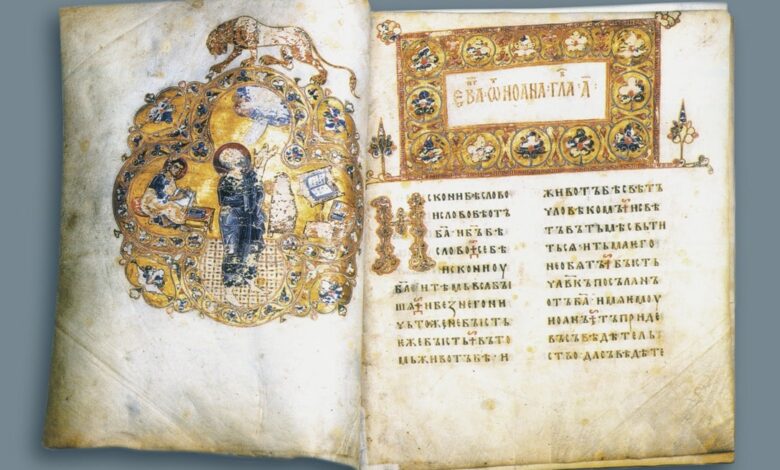 ЄВА · Ѿ ИОАНА · ГЛА · А҃ ·
ИСКОНИ БѢ СЛОВО
И СЛОВО БѢ ОТЪ
Б҃А И Б҃Ъ БѢ
СЛОВО · СЕ БѢ
ИСКОНИ ОУ
Б҃А И ТѢМЬ ВЬСѦ БЫ
ШѦ · И БЕЗ НЕГО НИ
ЧЬТОЖЕ НЕ БЫСТЬ
ѤЖЕ БЫСТЬ · ВЪ ТО
МЬ ЖИВОТЪ БѢ · И
ЖИВОТЪ БѢ СВѢТЪ
ЧЛОВѢКОМЪ · И СВѢ
ТЪ ВЪ ТЬМѢ СВЬТИ
ТЬСѦ · И ТЬМА ѤГО
НЕ ОБѦТЪ · БЫСТЬ
ЧЛ҃ВКЪ ПОСЪЛАНЪ
ОТЪ Б҃А · ИМѦ ѤМОУ
ИОАНЪ · ТЪ ПРИДЕ
ВЪ СЪВѢДѢТЕЛЬ
СТВО · ДА СЪВѢДѢТЕ